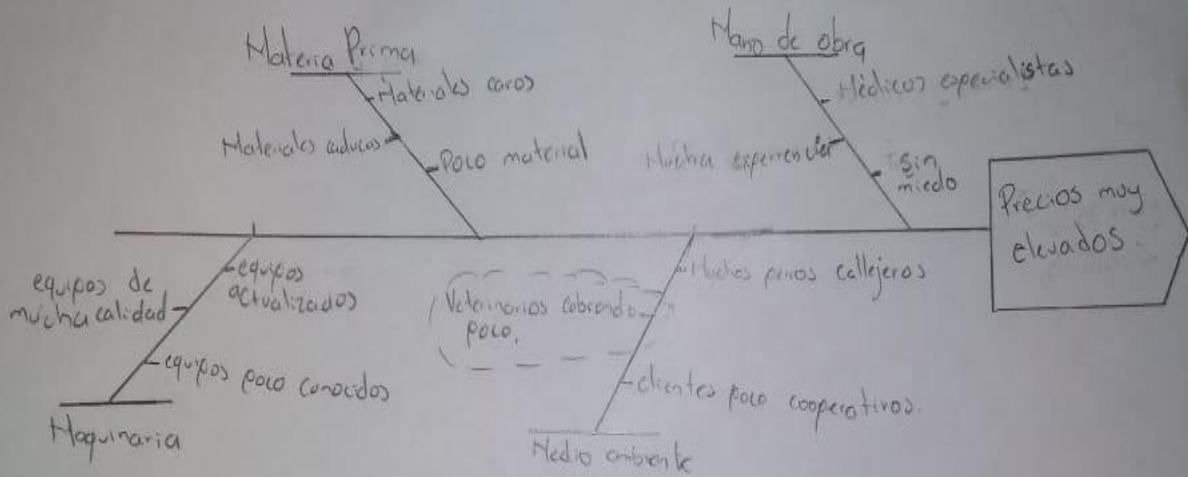 Materia Prima
Materiales caros
Materiales caducos
Poco material
Mano de obra
Médicos especialistas
Mucha experiencia
Sin
miedo
Precios muy
elevados.
equipos de
mucha calidad
equipos
actualizados
equipos poco conocidos
Maquinaria
Muchos perros callejeros
Veterinarios cobrando
poco.
clientes poco cooperativos.
Medio ambiente